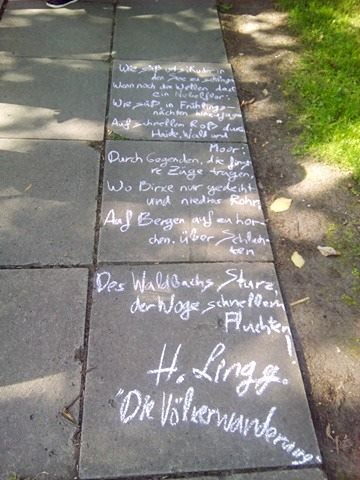 Wie süß ist's Ruder in
den See zu schlagen
Wann noch der Wellen
ein Nebelflor:
Wie süß, in Frühlings-
nächten hinzujagen
Auf schnellem Roß durch
Haide, Wald und
Moor:
Durch Gegenden, die
re Züge tragen,
Wo Birke nur gedeiht
und niedres Rohr,
Auf Bergen aufzuhor-
chen, über Schluch-
ten
Des Waldbachs Sturz,
der Woge schnellem
Fluchten!
H. Lingg.
"Die Völkerwanderung.